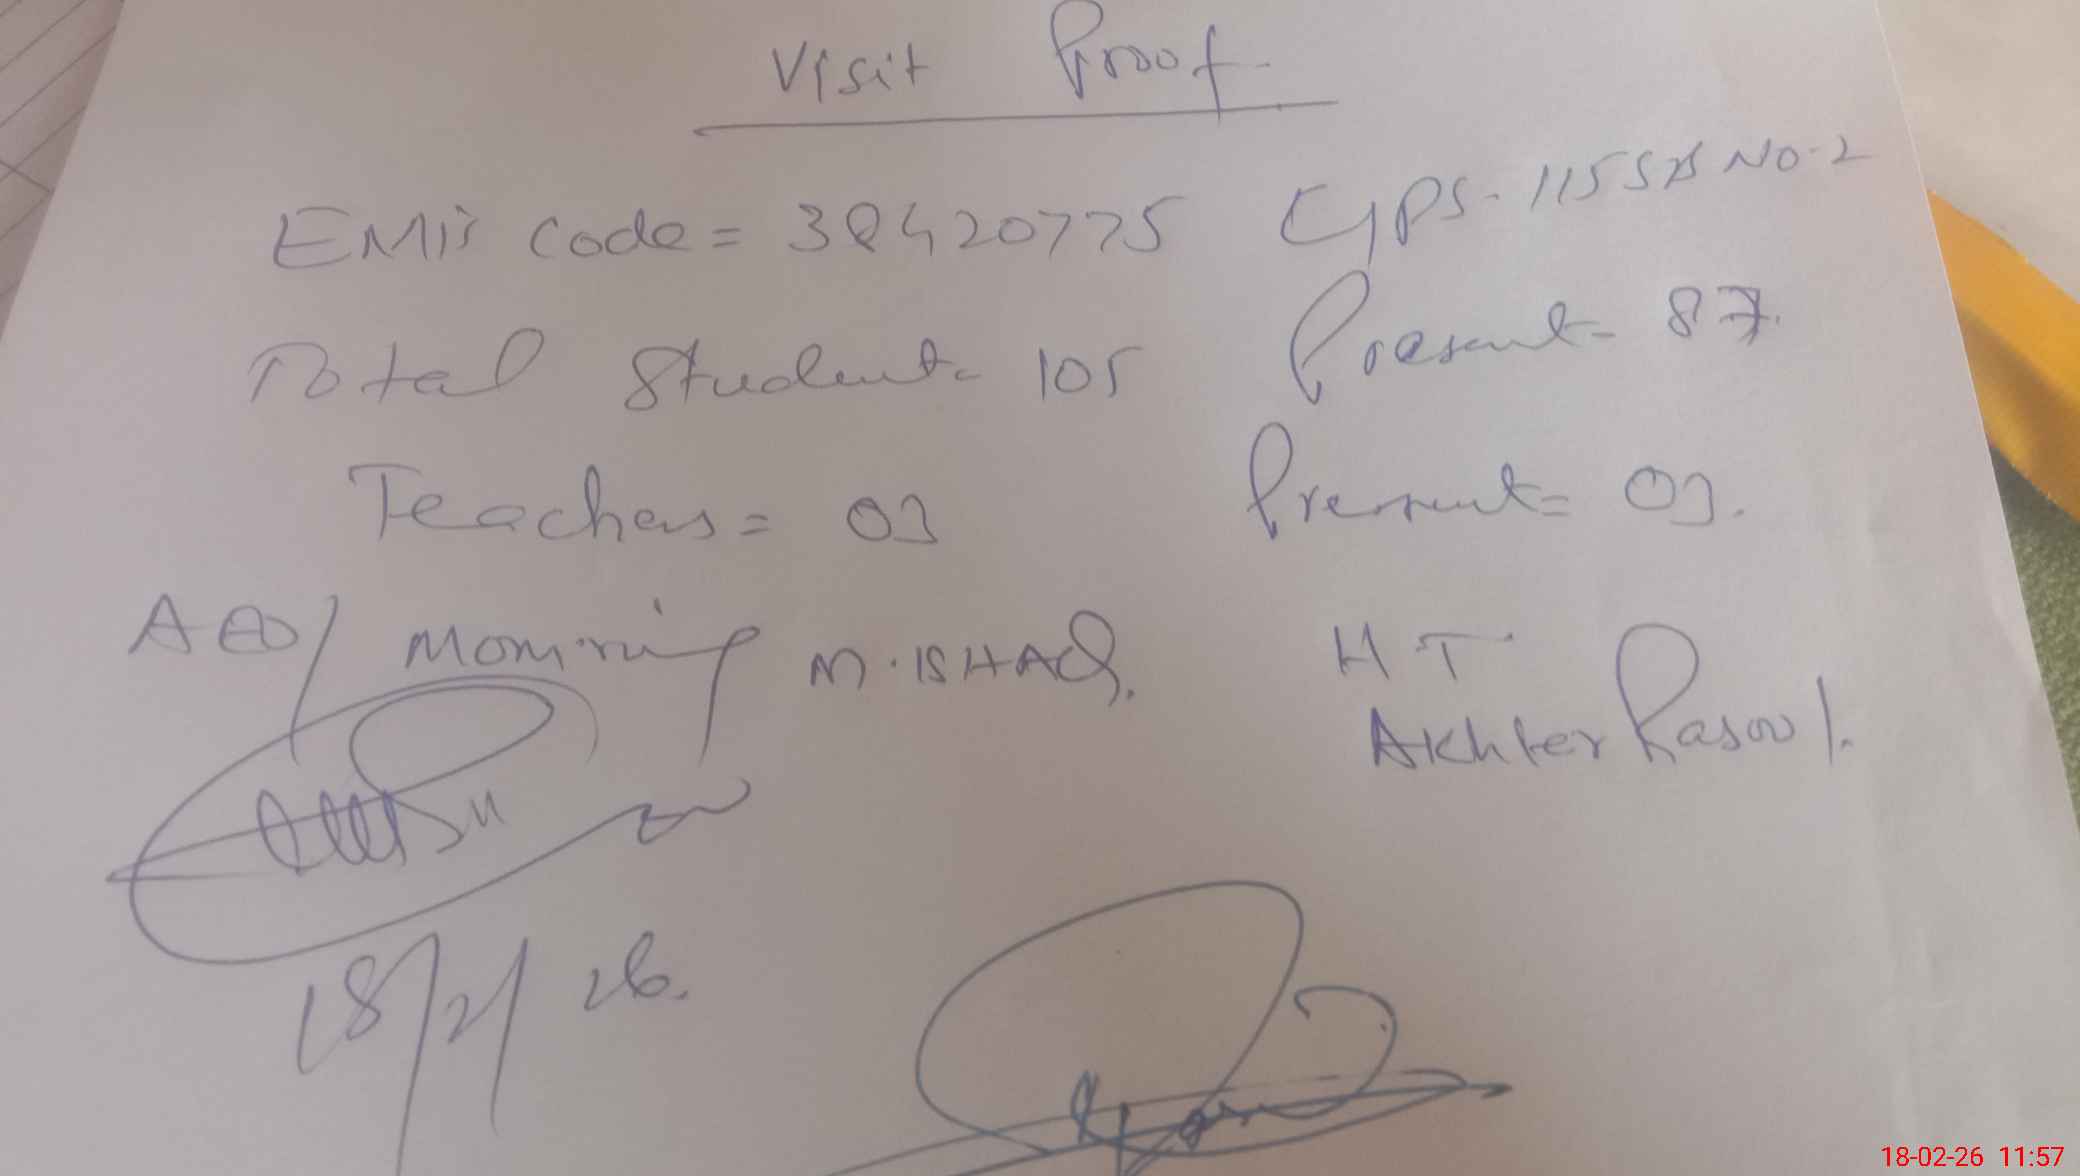 Visit Proof.
EMIS Code = 38420775 GPS-115SB NO-2
Total Student- 105 Present- 87.
Teachers = 03 Present = 03.
AEO/ M.ISHAQ. HT
Akhter Rasool.
18/2/26.
18-02-26 11:57